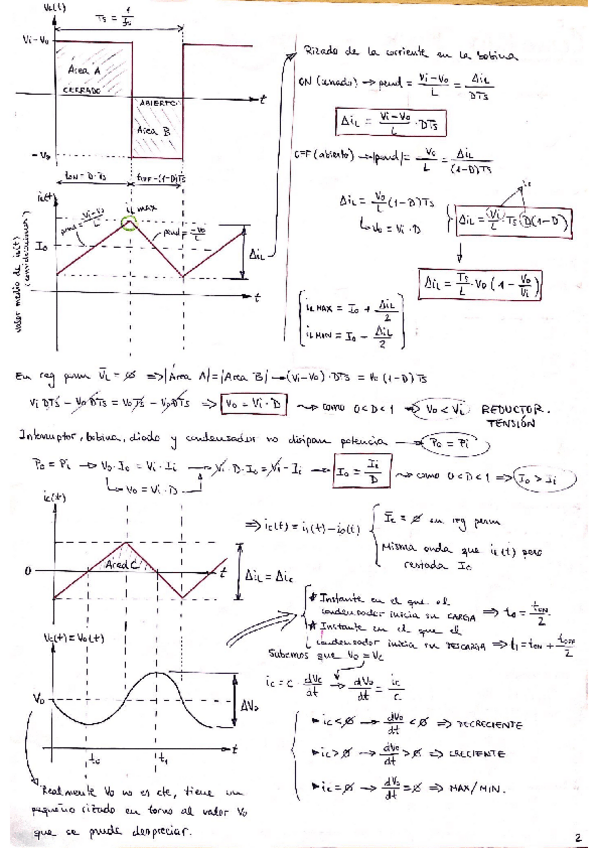 V_L(t)
Ts = 1/fs
Vi-Vo
Área A
CERRADO
ABIERTO
Área B
t
-Vo
ton = D·Ts
toff = (1-D)Ts
i_L(t)
i_L MAX
pend = Vi-Vo/L
pend = -Vo/L
Io
Δi_L
valor medio de i_L(t)
t
Rizado de la corriente en la bobina
ON (cerrado) → pend = Vi-Vo/L = Δi_L/DTs
Δi_L = Vi-Vo/L · DTs
OFF (abierto) → |pend| = Vo/L = Δi_L/(1-D)Ts
Δi_L = Vo/L (1-D)Ts
↳ Vo = Vi·D
Δi_L = Vi/L · Ts D(1-D)
Δi_L = Ts/L · Vo (1 - Vo/Vi)
i_L MAX = Io + Δi_L/2
i_L MIN = Io - Δi_L/2
En reg perm V̅_L = ∅ ⇒ |Área A| = |Área B| → (Vi-Vo)·DTs = Vo(1-D)Ts
Vi DTs - Vo DTs = VoTs - VoDTs ⇒ Vo = Vi·D ⤳ como 0<D<1 ⇒ Vo < Vi REDUCTOR.
TENSIÓN
Interruptor, bobina, diodo y condensador no disipan potencia → Po = Pi
Po = Pi → Vo·Io = Vi·Ii → Vi·D·Io = Vi·Ii → Io = Ii/D ⤳ como 0<D<1 ⇒ Io > Ii
↳ Vo = Vi·D
i_c(t)
0
Área C
t
Δi_L = Δi_c
⇒ i_c(t) = i_L(t) - i_o(t)
I̅c = ∅ en reg perm
Misma onda que i_L(t) pero
restada Io
V_c(t) = Vo(t)
Vo
ΔVo
t
to
t1
★ Instante en el que el
condensador inicia su CARGA ⇒ to = ton/2
★ Instante en el que el
condensador inicia su DESCARGA ⇒ t1 = ton + toff/2
Sabemos que Vo = Vc
i_c = C · dVc/dt → dVo/dt = ic/C
▸ ic < ∅ → dVo/dt < ∅ ⇒ DECRECIENTE
▸ ic > ∅ → dVo/dt > ∅ ⇒ CRECIENTE
▸ ic = ∅ → dVo/dt = ∅ ⇒ MAX/MIN.
Realmente Vo no es cte, tiene un
pequeño rizado en torno al valor Vo
que se puede despreciar.
2